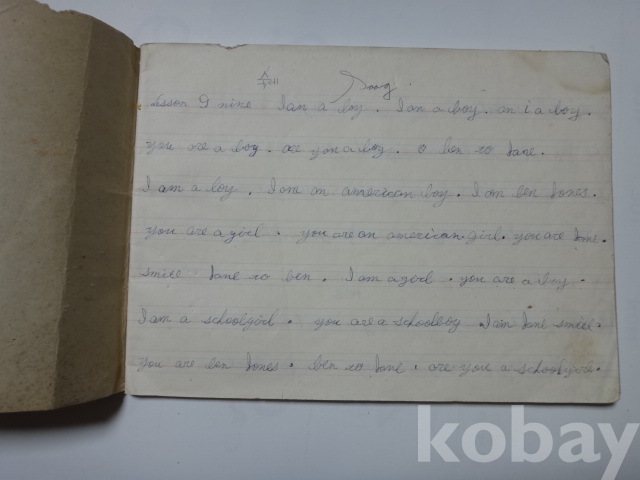 Lesson 9 nine I am a boy. I am a boy. am i a boy.
you are a boy. are you a boy. ben to Jane.
I am a boy. I am an american boy. I am ben Jones.
you are a girl. you are an american girl. you are Jane.
smice Jane to ben. I am a girl. you are a boy.
I am a schoolgirl. you are a schoolboy I am Jane smice.
you are ben Jones. ben to Jane. are you a
kobay